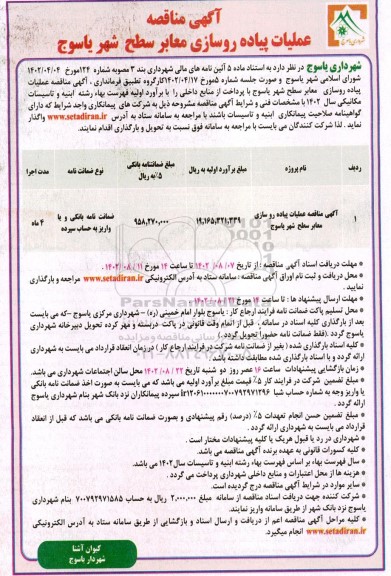 آگهی مناقصه
عملیات پیاده روسازی معابر سطح شهر یاسوج
شهرداری یاسوج در نظر دارد به استناد ماده ۵ آئین نامه های مالی شهرداری بند ۳ مصوبه شماره ۱۲۴مورخ ۱۴۰۲/۰۴/۰۴
شورای اسلامی شهر یاسوج و صورت جلسه شماره ۵مورخ ۱۴۰۲/۰۴/۱۷کارگروه تطبیق فرمانداری ، آگهی مناقصه عملیات
پیاده روسازی معابر سطح شهر یاسوج با پرداخت از منابع داخلی را با برآورد اولیه فهرست بهاء رشته ابنیه و تاسیسات
مکانیکی سال ۱۴۰۲ با مشخصات فنی و شرایط آگهی مناقصه مشروحه ذیل به شرکت های پیمانکاری واجد شرایط که دارای
گواهینامه صلاحیت پیمانکاری ابنیه و تاسیسات باشند با مراجعه به سامانه ستاد به آدرس www.setadiran.ir واگذار
نماید . لذا شرکت کنندگان می بایست با مراجعه به سامانه فوق نسبت به تحویل و بارگذاری اقدام نمایند.
ردیف نام پروژه مبلغ برآورد اولیه به ریال مبلغ ضمانتنامه بانکی ۵٪به ریال نوع ضمانت نامه مدت اجرا
۱ آگهی مناقصه عملیات پیاده رو سازی معابر سطح شهر یاسوج ۱۹,۱۶۵,۳۲۱,۳۳۹ ۹۵۸,۲۷۰,۰۰۰ ضمانت نامه بانکی و یا واریز به حساب سپرده ۴ ماه
* مهلت دریافت اسناد آگهی مناقصه : از تاریخ ۰۷/ ۰۸/ ۱۴۰۲ تا ساعت ۱۴ مورخ ۱۱/ ۰۸/ ۱۴۰۲ .
* محل دریافت و ثبت نام اوراق آگهی مناقصه : سامانه ستاد به آدرس الکترونیکی www.setadiran.ir مراجعه و بارگذاری
نمایید .
* مهلت ارسال پیشنهاد ها : تا ساعت ۱۴ مورخ ۲۱/ ۰۸/ ۱۴۰۲
* محل تسلیم پاکت ضمانت نامه فرآیند ارجاع کار : یاسوج بلوار امام خمینی (ره) – شهرداری مرکزی یاسوج –که می بایست
بعد از بارگذاری کلیه اسناد در سامانه ، قبل از اتمام وقت قانونی در پاکت دربسته و مهر کرده تحویل دبیرخانه شهرداری
یاسوج گردد .(فقط ضمانت نامه حضورا تحویل گردد.)
* کلیه اسناد بارگذاری شده ( بغیر از ضمانت نامه شرکت در فرآیند ارجاع کار ) در زمان انعقاد قرارداد می بایست به شهرداری
ارائه گردد و با اسناد بارگذاری شده مطابقت داشته باشد .
* زمان بازگشایی پیشنهادات ساعت ۱۶ عصر روز دو شنبه تاریخ ۲۲/ ۰۸/ ۱۴۰۲ محل سالن اجتماعات شهرداری می باشد.
* مبلغ تضمین شرکت در فرایند کار ۵٪ قیمت مبلغ برآورد اولیه می باشد که می بایست به صورت اخذ ضمانت نامه بانکی
ارائه گردد .
* مبلغ تضمین حسن انجام تعهدات ۵٪ (درصد) رقم پیشنهادی و بصورت ضمانت نامه بانکی می باشد که قبل از انعقاد
قرارداد می بایست به شهرداری ارائه گردد .
* شهرداری در رد یا قبول هریک یا کلیه پیشنهادات مختار است .
* کلیه کسورات قانونی به عهده برنده آگهی مناقصه می باشد.
* سال فهرست بهاء بر اساس فهرست بهاء رشته ابنیه و تاسیسات سال۱۴۰۲ می باشد.
* هزینه ها از محل اعتبارات و منابع داخلی شهرداری پرداخت می گردد .
* سایر موارد در شرایط آگهی مناقصه درج گردیده است.
* شرکت کننده جهت دریافت اسناد مناقصه از سامانه مبلغ ۲,۰۰۰,۰۰۰ ریال به حساب ۷۰۰۷۹۲۹۷۱۵۸۵ بنام شهرداری
یاسوج نزد بانک شهر از طریق سامانه واریز نمایند.
* کلیه مراحل آگهی مناقصه اعم از دریافت و ارسال اسناد و بازگشایی از طریق سامانه ستاد به آدرس الکترونیکی
www.setadiran.ir انجام میگیرد.
کیوان آشنا
شهردار یاسوج